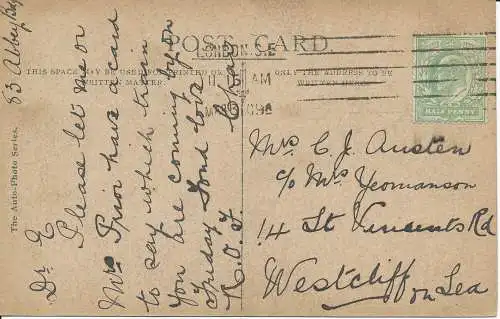 POST CARD.
THIS SPACE MAY BE USED FOR PRINTED OR
WRITTEN MATTER.
ONLY THE ADDRESS TO BE
WRITTEN HERE.
LONDON. S.E
AM
HALF PENNY
The Auto-Photo Series.
83 Abbey
Dr. E
Please let me or
Mrs Prior have a card
to say which train
you are coming by on
Fond love
Mrs C. J. Austen
c/o Mrs Yeomanson
14 St Vincents Rd
Westcliff
on Sea